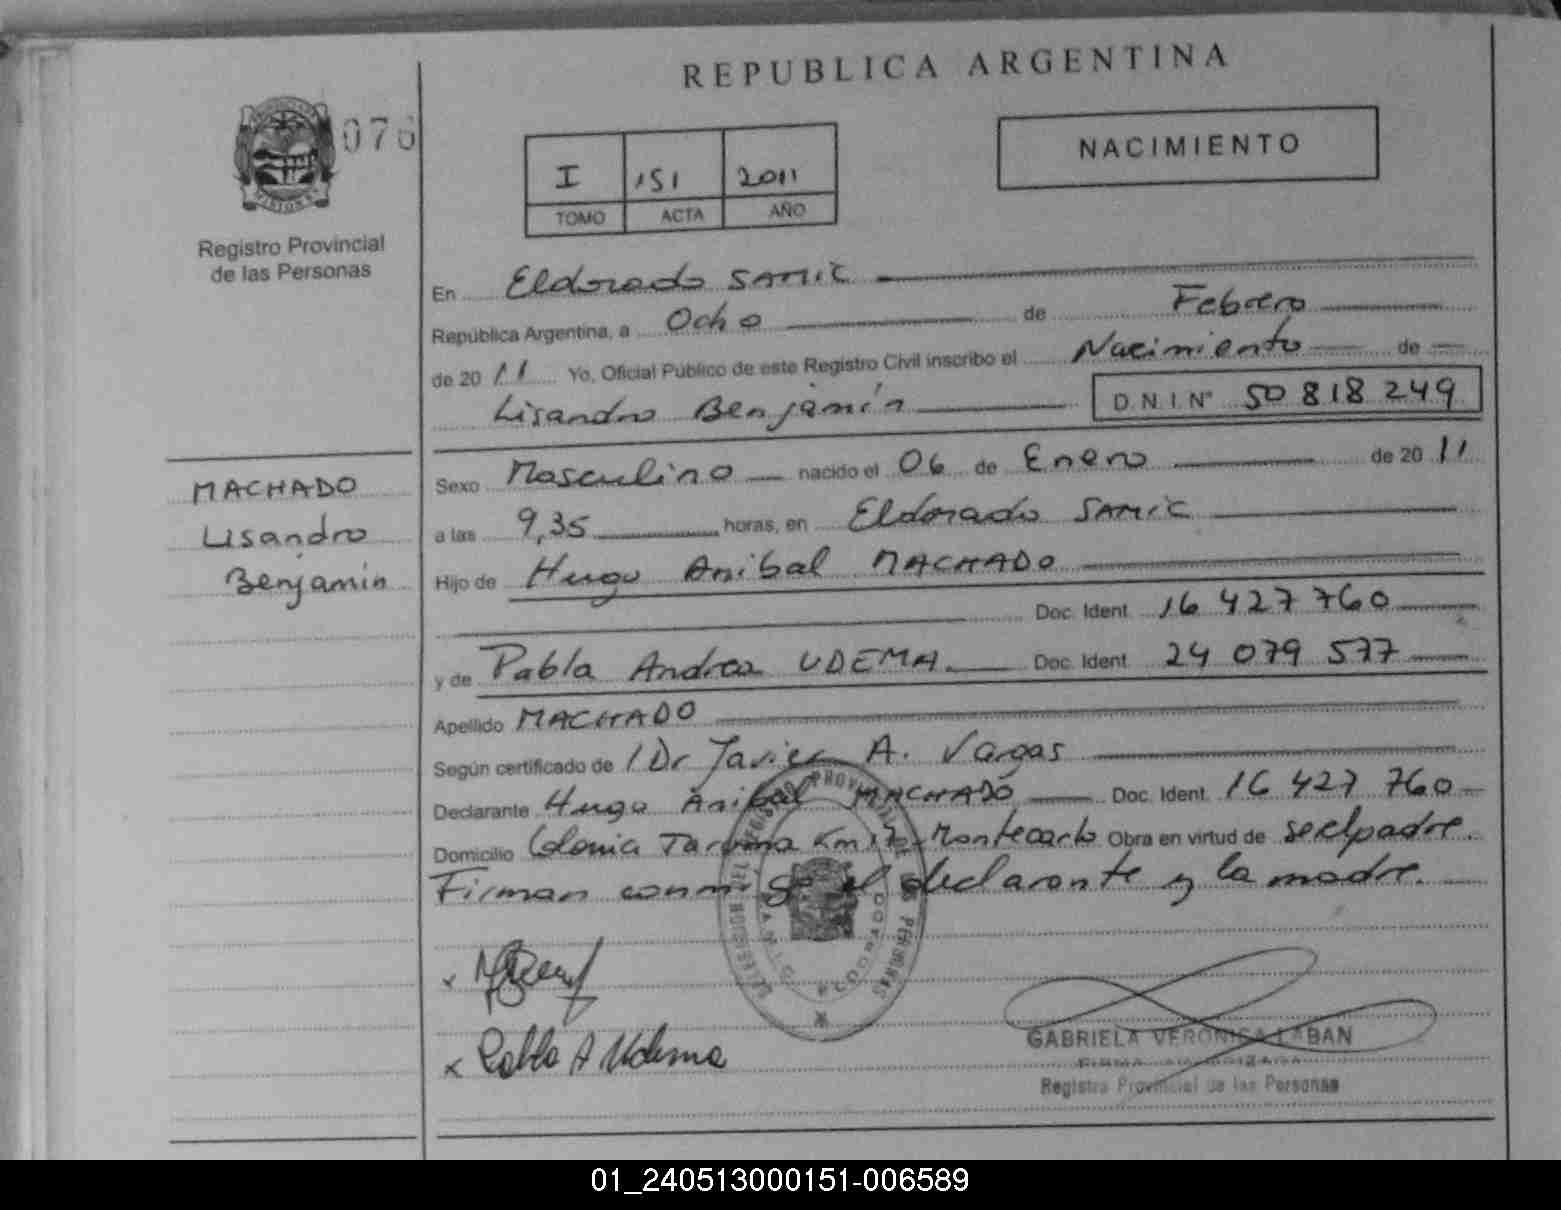 REPUBLICA ARGENTINA
076
NACIMIENTO
I 151 2011
TOMO ACTA AÑO
Registro Provincial
de las Personas
En Eldorado SAMIC
República Argentina, a Ocho de Febrero
de 2011 Yo, Oficial Público de este Registro Civil inscribo el Nacimiento de
Lisandro Benjamín D.N.I. Nº 50 818 249
MACHADO
Lisandro
Benjamín
Sexo Masculino nacido el 06 de Enero de 2011
a las 9,35 horas, en Eldorado SAMIC
Hijo de Hugo Anibal MACHADO
Doc. Ident. 16 427 760
y de Pabla Andrea UDEMA Doc. Ident. 24 079 577
Apellido MACHADO
Según certificado de Dr Javier A. Vargas
Declarante Hugo Anibal MACHADO Doc. Ident. 16 427 760
Domicilio Colonia Km Montecarlo Obra en virtud de ser el padre.
Firman conmigo el declarante y la madre.
REGISTRO PROVINCIAL DE LAS PERSONAS
ELDORADO
Pabla A Udema
GABRIELA VERONICA LABAN
FIRMA AUTORIZADA
Registro Provincial de las Personas
01_240513000151-006589